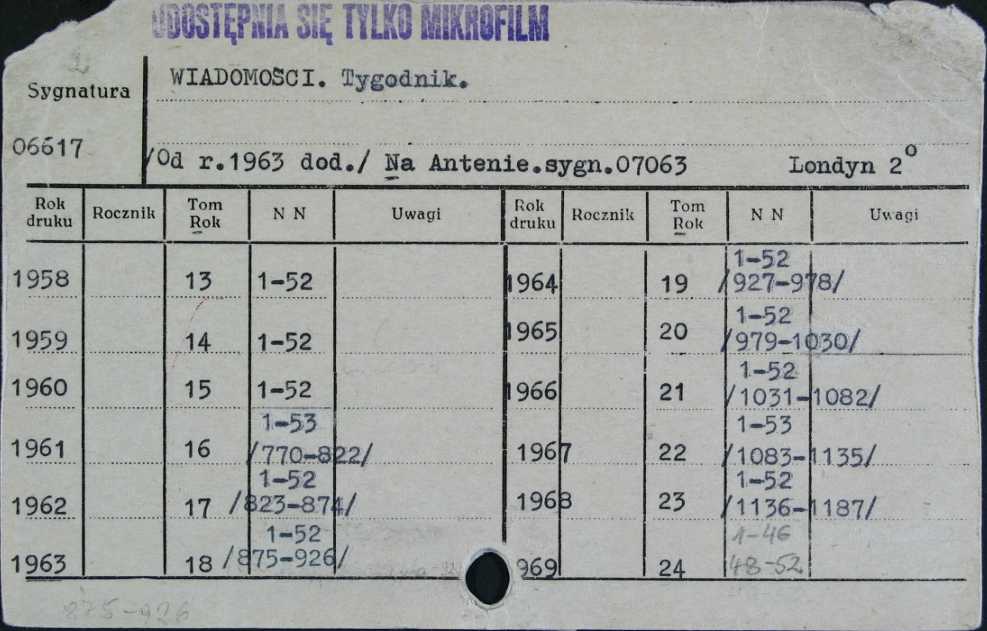 UDOSTĘPNIA SIĘ TYLKO MIKROFILM
Sygnatura
WIADOMOŚCI. Tygodnik.
06617
/Od r.1963 dod./ Na Antenie.sygn.07063 Londyn 2°
Rok druku Rocznik Tom Rok N N Uwagi Rok druku Rocznik Tom Rok N N Uwagi
1958 13 1-52
1959 14 1-52
1960 15 1-52
1961 16 1-53 /770-822/
1962 17 1-52 /823-874/
1963 18 1-52 /875-926/
1964 19 1-52 /927-978/
1965 20 1-52 /979-1030/
1966 21 1-52 /1031-1082/
1967 22 1-53 /1083-1135/
1968 23 1-52 /1136-1187/
969 24 1-46 48-52
875-926